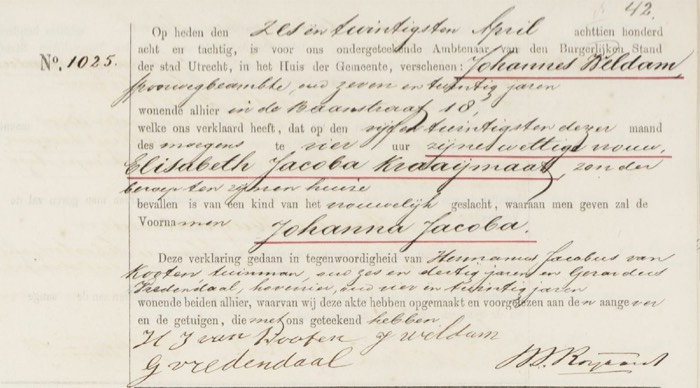 42.
Op heden den Zes en twintigsten April achttien honderd
No. 1025. acht en tachtig, is voor ons ondergeteekende Ambtenaar van den Burgerlijken Stand
der stad Utrecht, in het Huis der Gemeente, verschenen: Johannes Weldam,
spoorwegbeambte, oud zeven en twintig jaren
wonende alhier in de Baanstraat 18,
welke ons verklaard heeft, dat op den vijf en twintigsten dezer maand
des morgens te vier uur zijne wettige vrouw,
Elisabeth Jacoba Kraaijmaat, zonder
beroep ten zijnen huize
bevallen is van een kind van het vrouwelijk geslacht, waaraan men geven zal de
Voornamen Johanna Jacoba.
Deze verklaring gedaan in tegenwoordigheid van Hermanus Jacobus van
Kooten, tuinman, oud zes en dertig jaren en Gerardus
Vredendaal, hovenier, oud vier en twintig jaren
wonende beiden alhier, waarvan wij deze akte hebben opgemaakt en voorgelezen aan den aangever
en de getuigen, die met ons geteekend hebben
H J van Kooten J Weldam
G Vredendaal